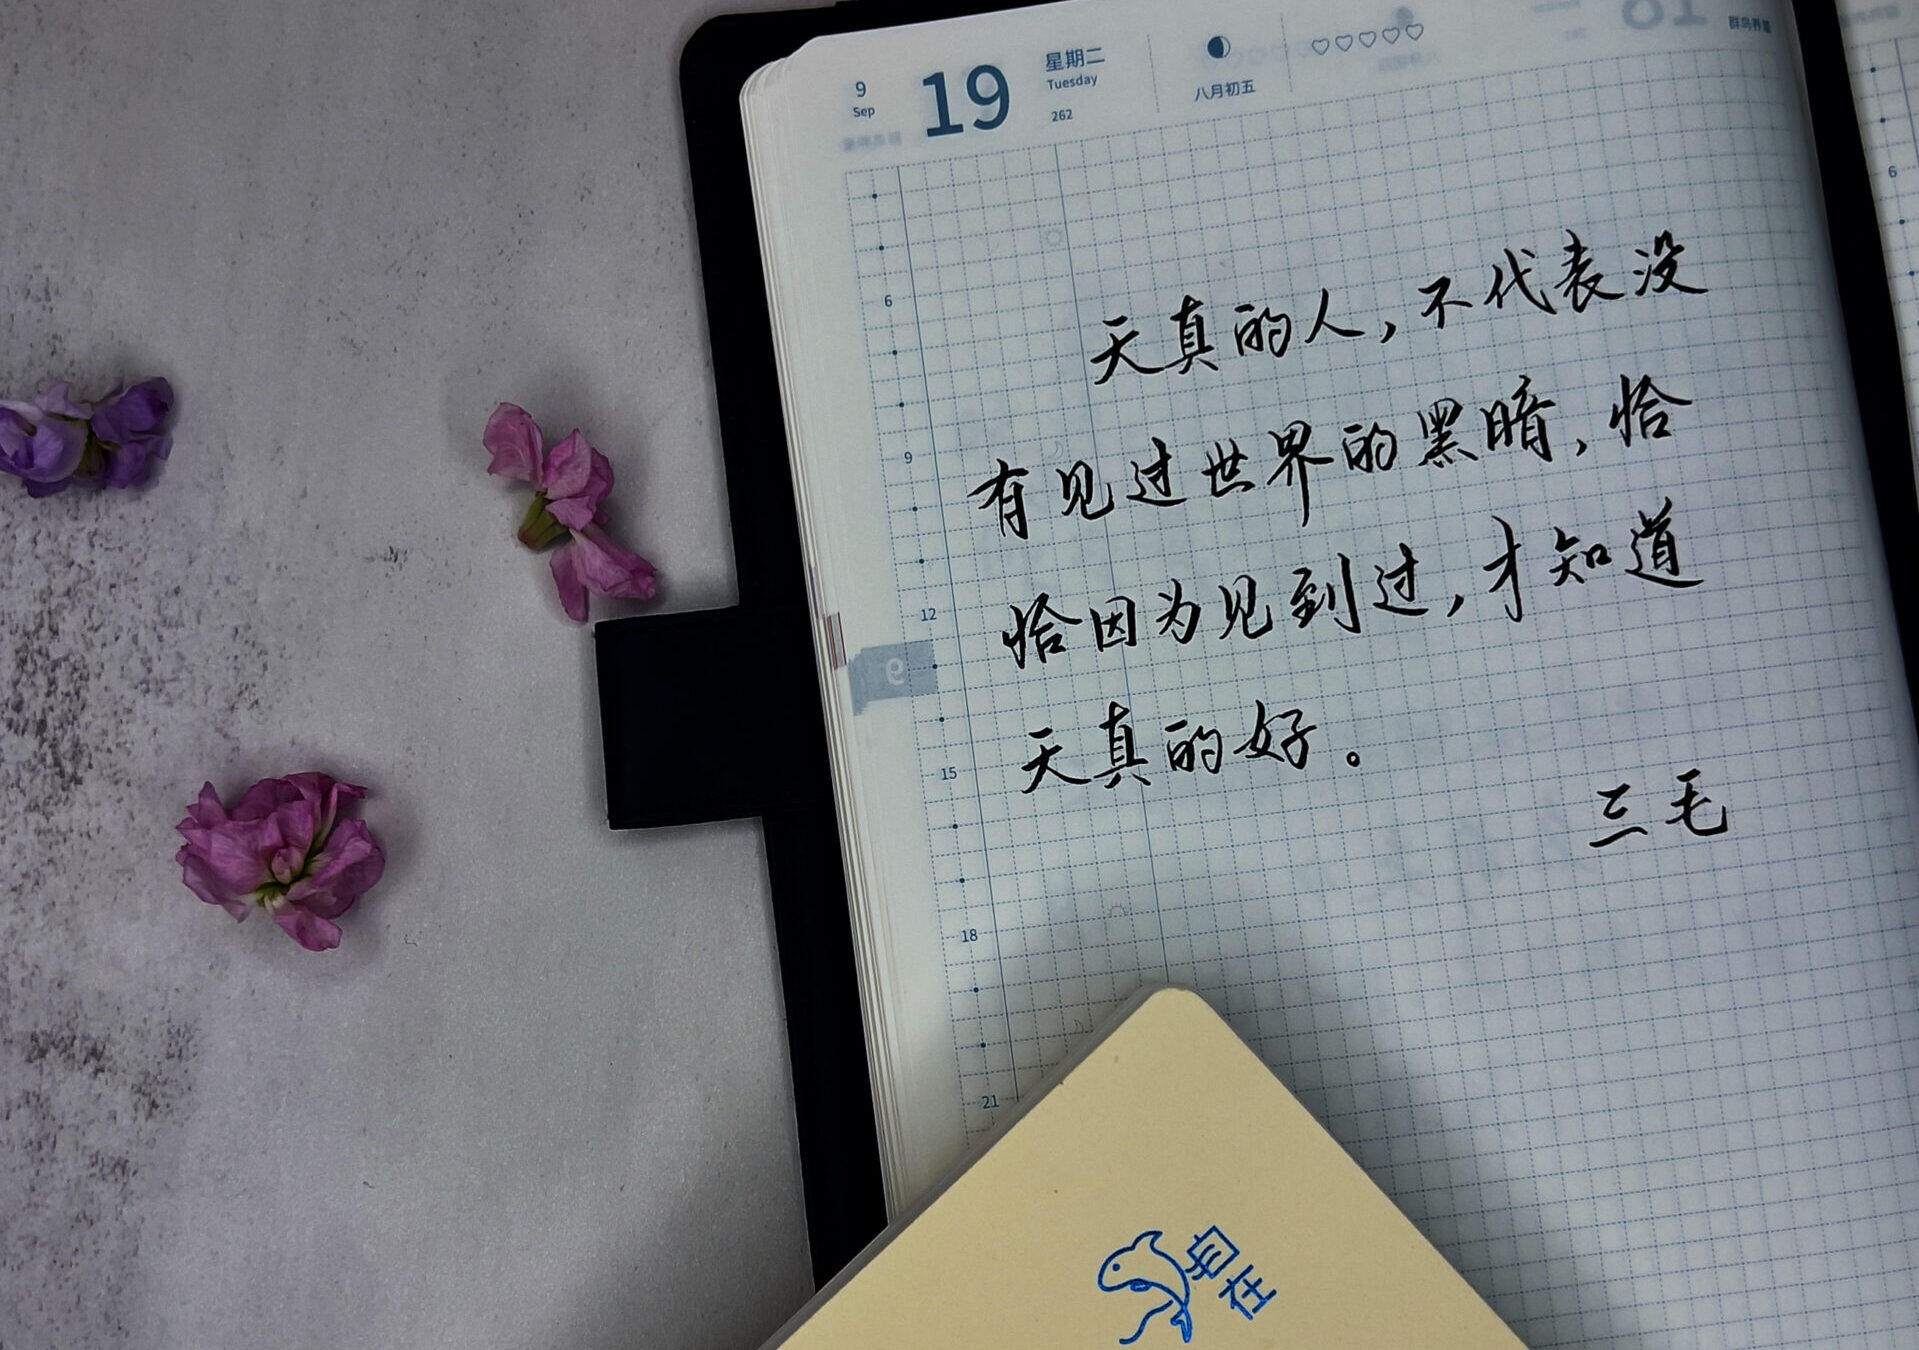 9
Sep
19
星期二
Tuesday
262
八月初五
6
9
12
15
18
21
天真的人，不代表没
有见过世界的黑暗，恰
恰因为见到过，才知道
天真的好。
三毛
自在
6